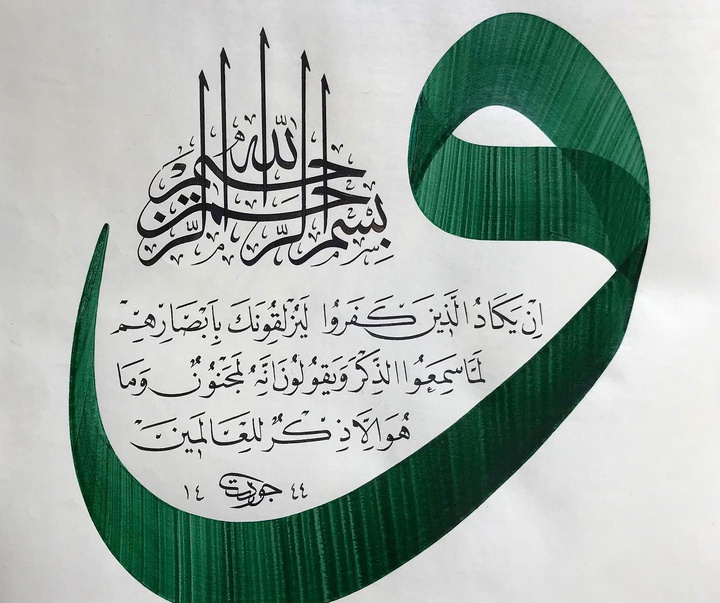 و
بِسْمِ اللّٰهِ الرَّحْمٰنِ الرَّحِيمِ
اِنْ يَكَادُ الَّذِينَ كَفَرُوا لَيُزْلِقُونَكَ بِاَبْصَارِهِمْ
لَمَّا سَمِعُوا الذِّكْرَ وَيَقُولُونَ اِنَّهُ لَمَجْنُونٌ وَمَا
هُوَ اِلَّا ذِكْرٌ لِلْعَالَمِينَ
١٤ جودت ٤٤